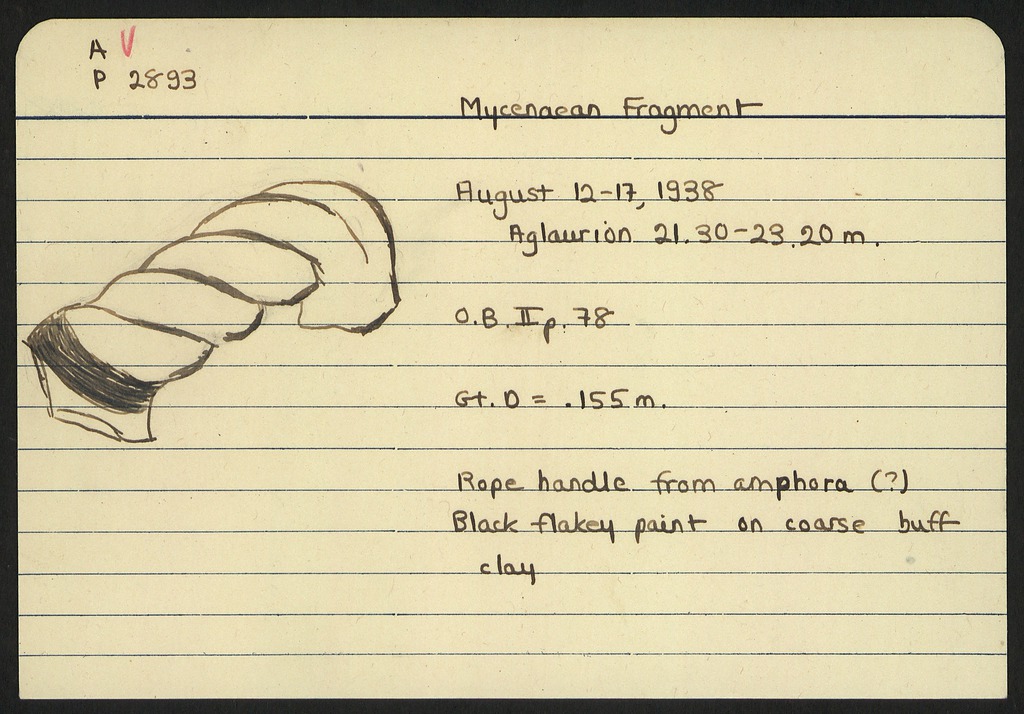 A V
P 2893
Mycenaean Fragment
August 12-17, 1938
Aglaurion 21.30-23.20 m.
O.B. II p. 78
Gt. D = .155 m.
Rope handle from amphora (?)
Black flakey paint on coarse buff
clay